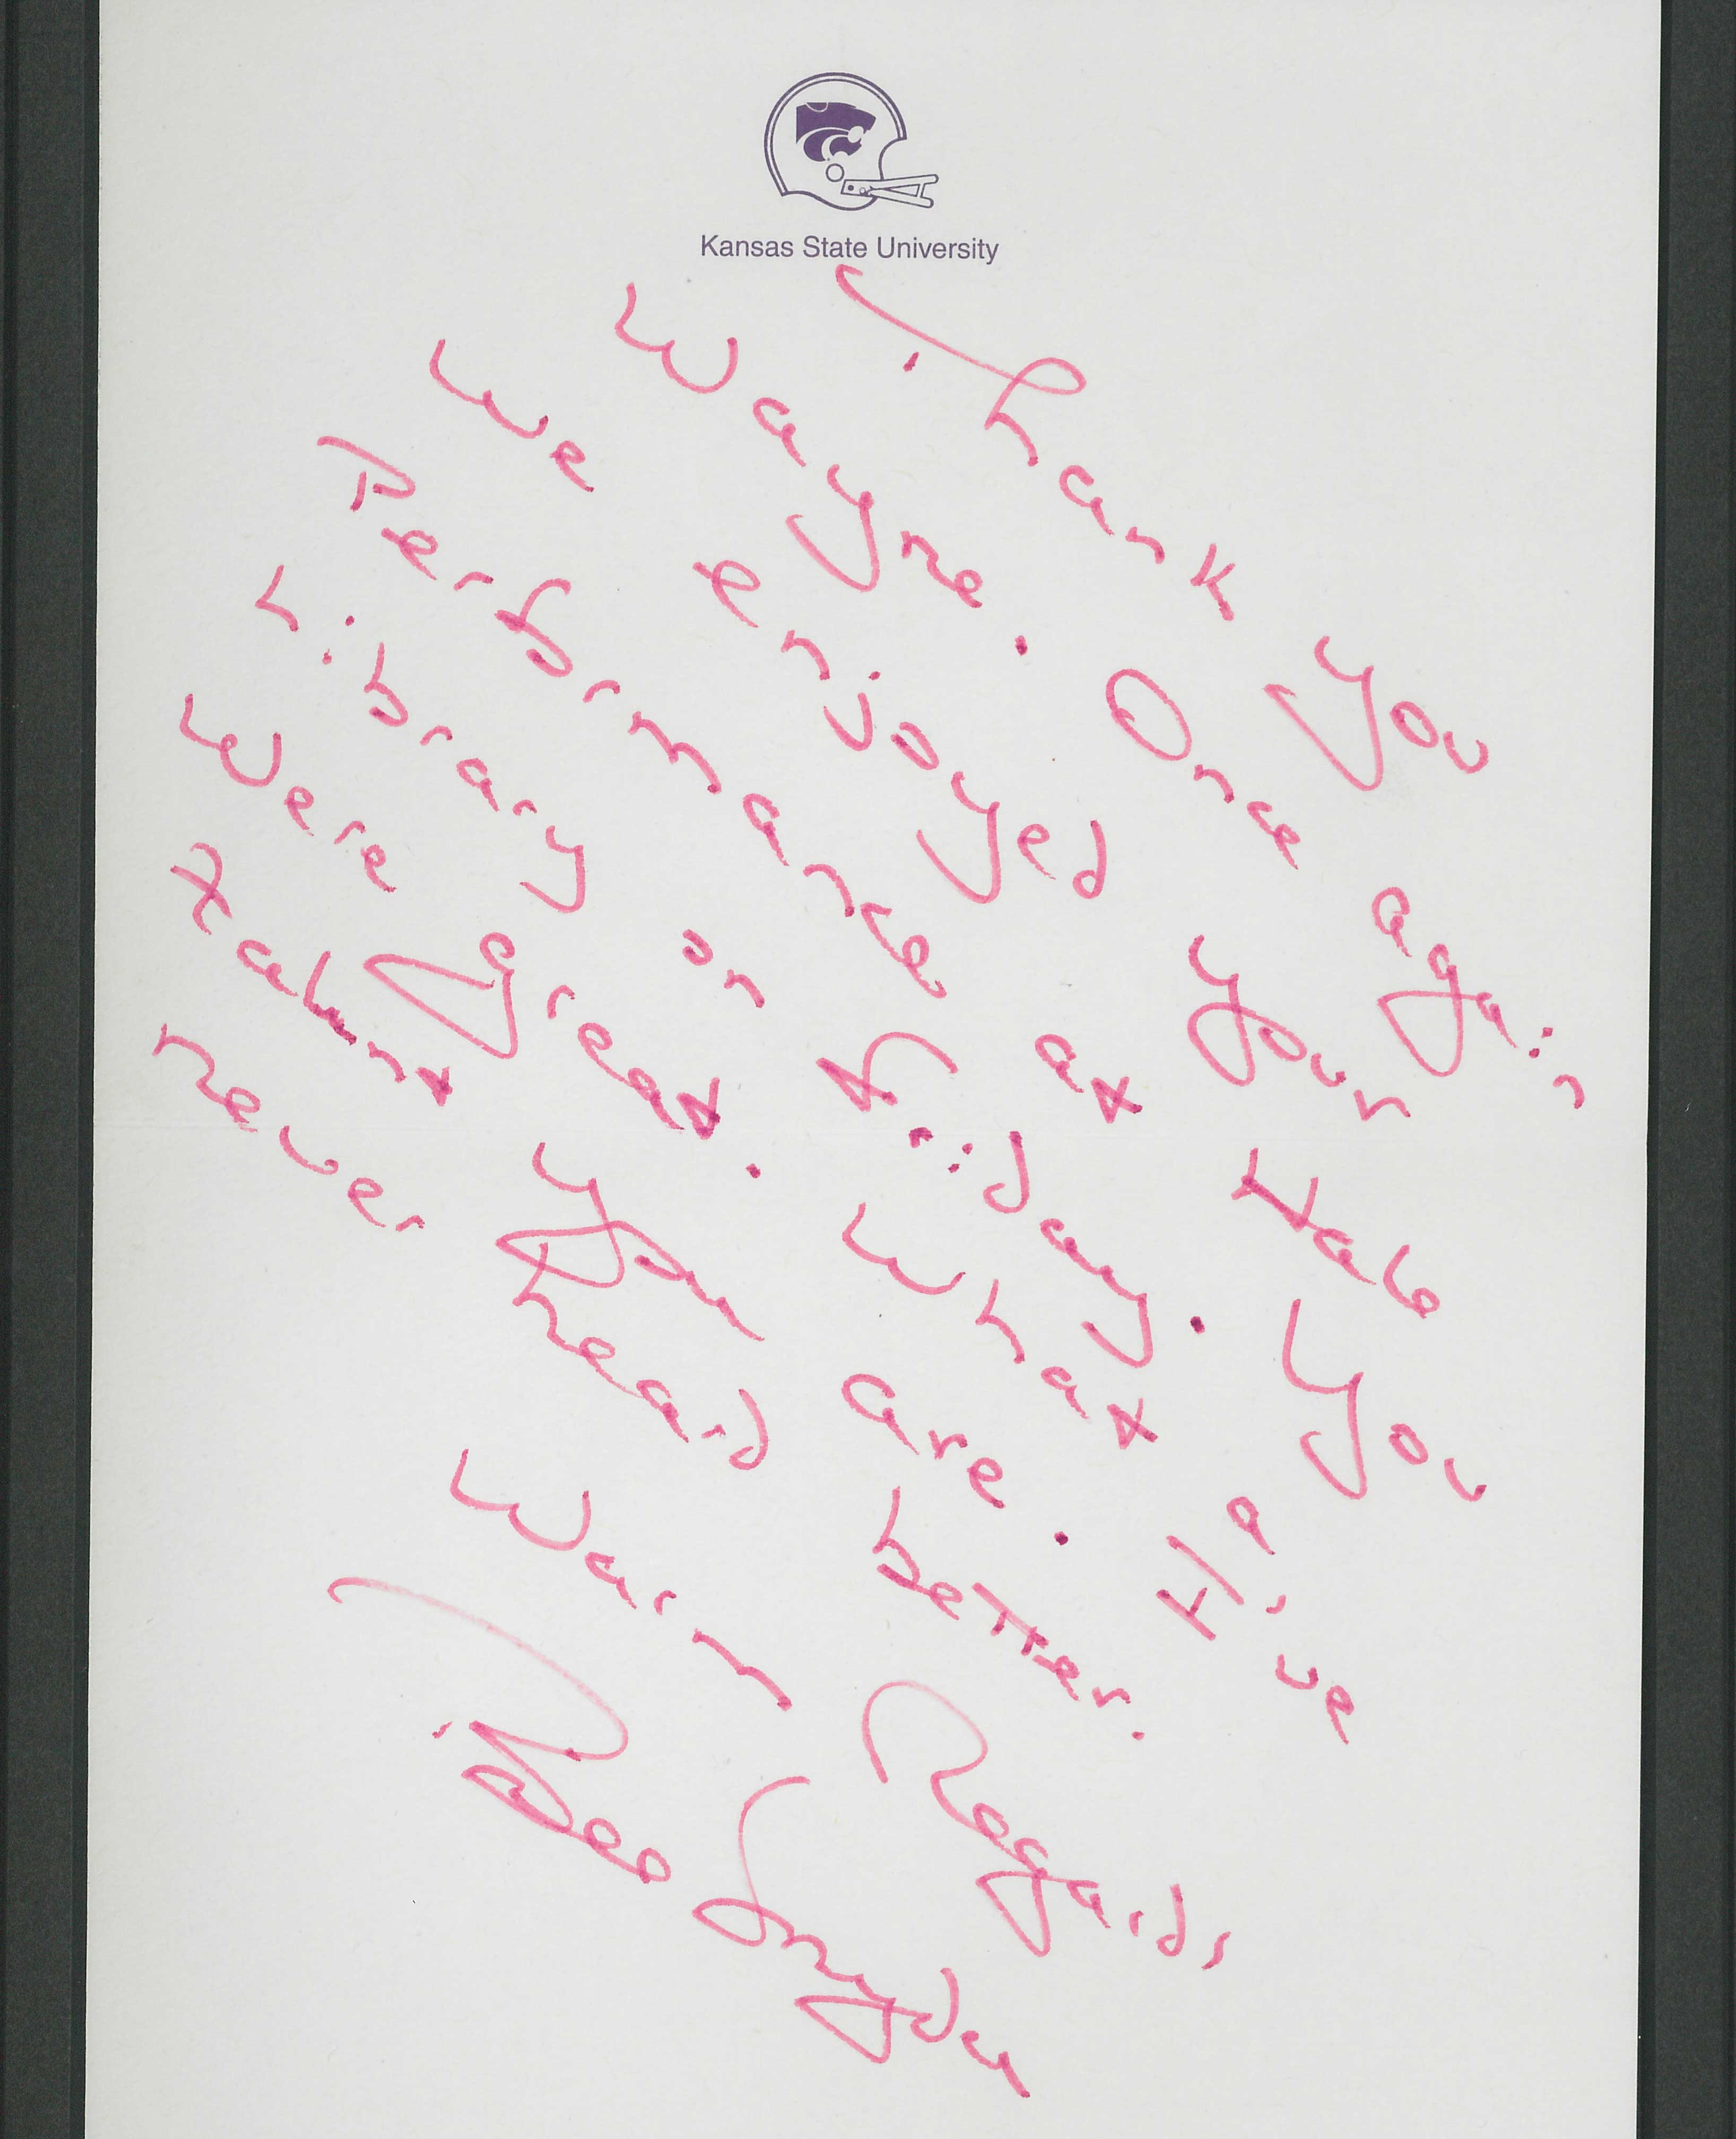 Kansas State University
Thank you
Wayne. Once again
we enjoyed your
Performance at Hale
Library on Friday. You
Were great. What a
talent you are. I've
never heard better.
Warm Regards,
Bill Snyder